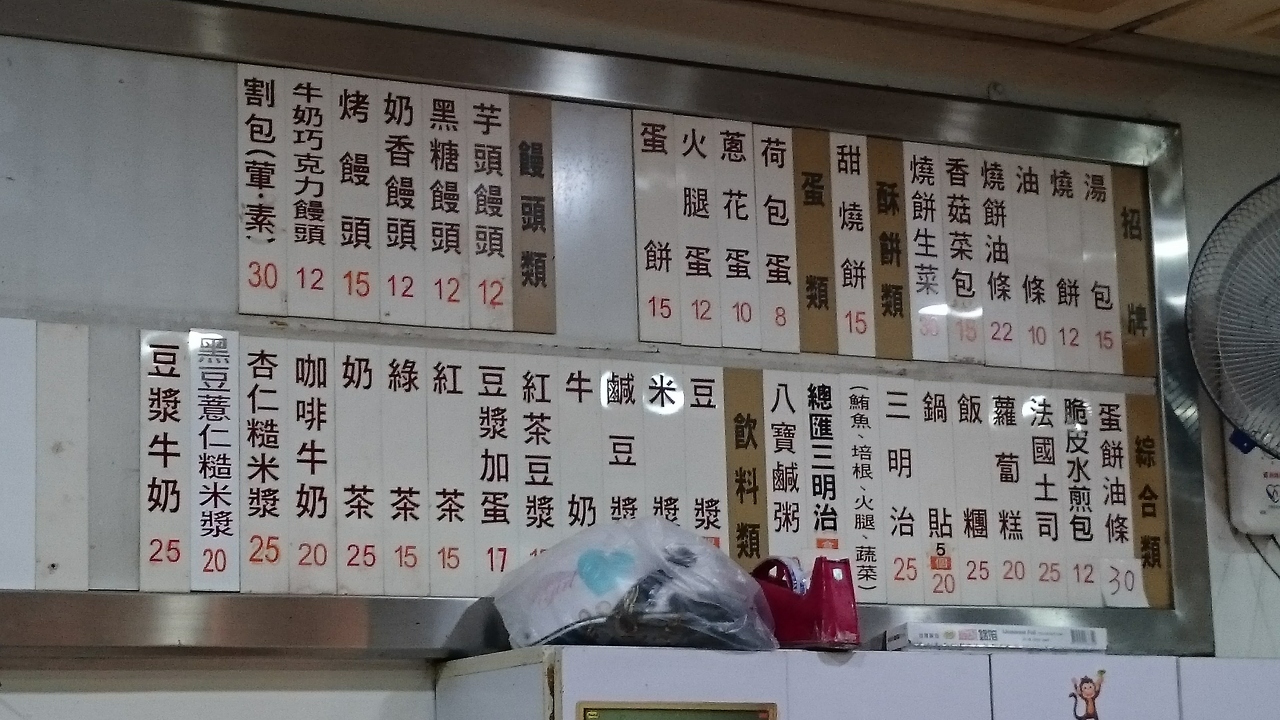 招牌
湯包 15
燒餅 12
油條 10
燒餅油條 22
香菇菜包 15
燒餅生菜 30
酥餅類
甜燒餅 15
蛋類
荷包蛋 8
蔥花蛋 10
火腿蛋 12
蛋餅 15
饅頭類
芋頭饅頭 12
黑糖饅頭 12
奶香饅頭 12
烤饅頭 15
牛奶巧克力饅頭 12
割包(葷.素) 30
綜合類
蛋餅油條 30
脆皮水煎包 12
法國土司 25
蘿蔔糕 20
飯糰 25
鍋貼 5個 20
三明治 25
(鮪魚、培根、火腿、蔬菜)
總匯三明治
八寶鹹粥
飲料類
豆漿
米漿
鹹豆漿
牛奶
紅茶豆漿
豆漿加蛋 17
紅茶 15
綠茶 15
奶茶 25
咖啡牛奶 20
杏仁糙米漿 25
黑豆薏仁糙米漿 20
豆漿牛奶 25